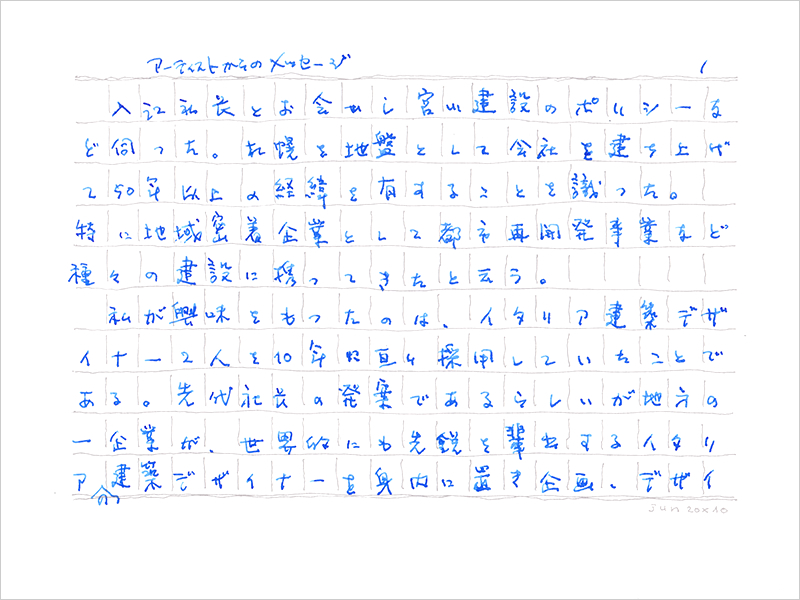 アーティストからのメッセージ 1
入江社長とお会いし宮川建設のポリシーな
ど伺った。札幌を地盤として会社を建ち上げ
て50年以上の経緯を有することを識った。
特に地域密着企業として都市再開発事業など
種々の建設に携ってきたと云う。
私が興味をもったのは、イタリア建築デザ
イナー2人を10年に亘り採用していたことで
ある。先代社長の発案であるらしいが地方の
一企業が、世界的にも先鋭を輩出するイタリ
ア建築デザイナーを身内に置き企画、デザイ
の
Jun 20×10